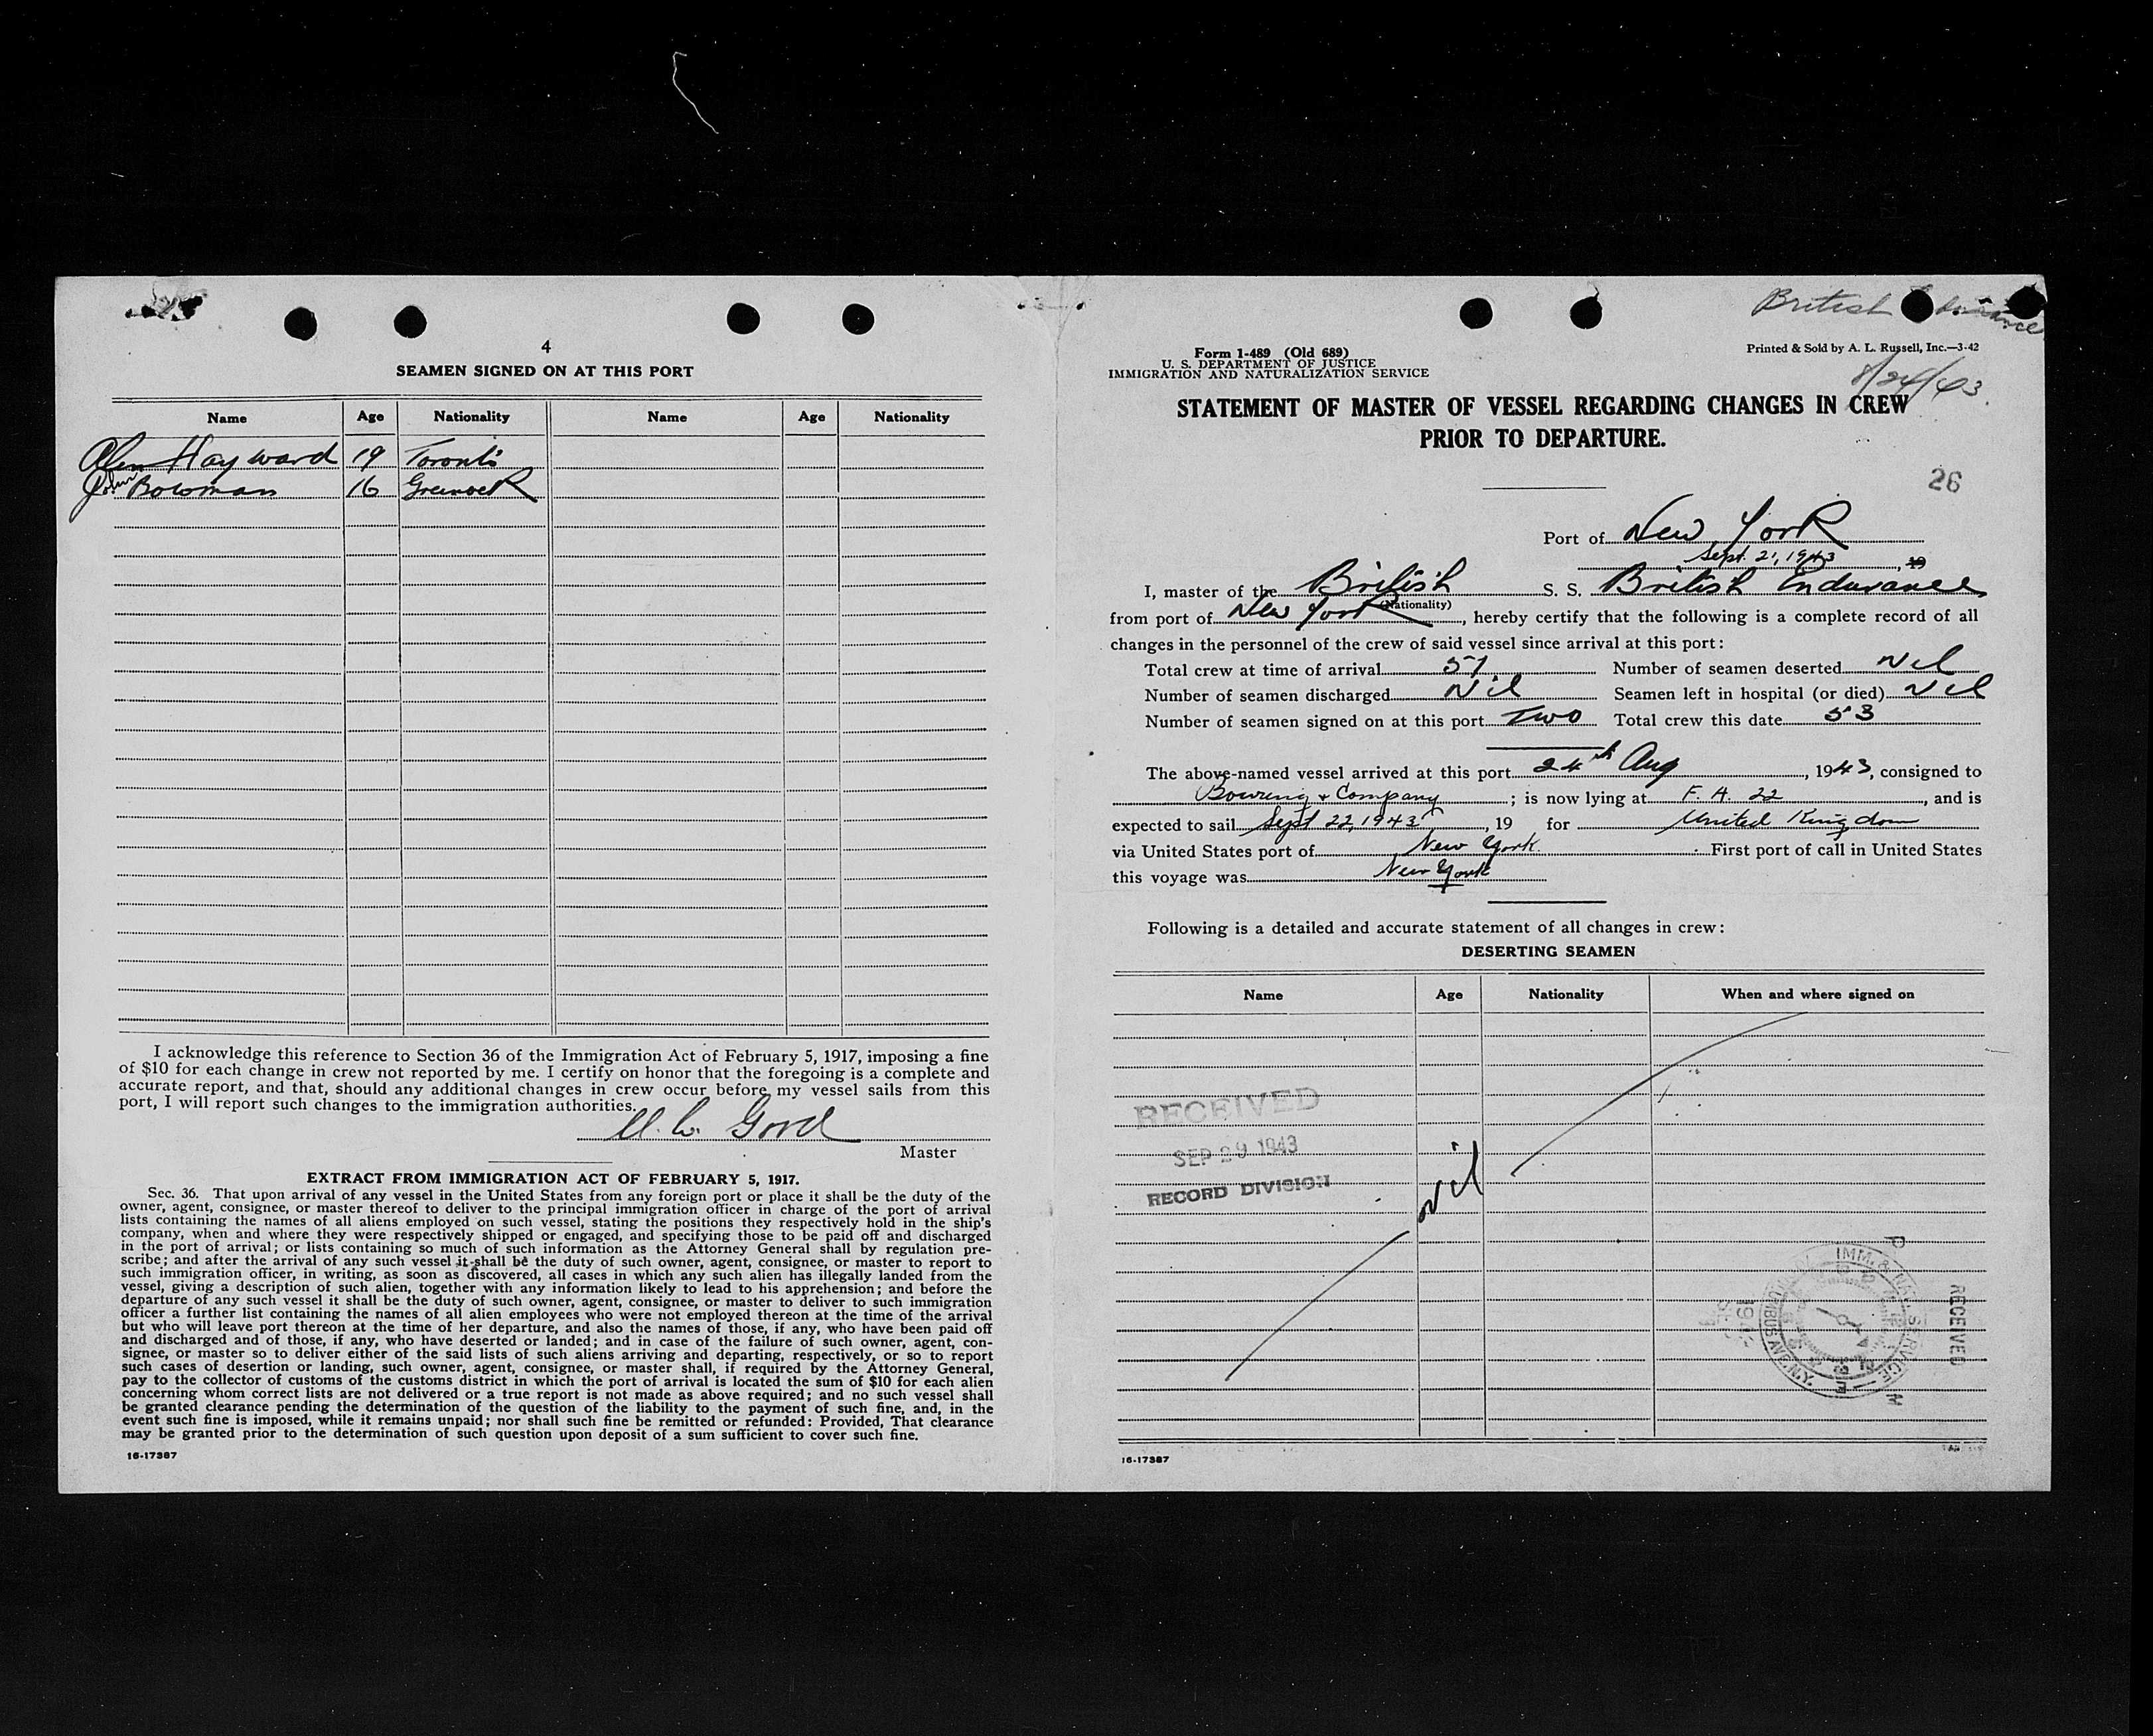 4
SEAMEN SIGNED ON AT THIS PORT
Name Age Nationality Name Age Nationality
Alen Hayward 19 Toronto
John Bowman 16 Greenock
I acknowledge this reference to Section 36 of the Immigration Act of February 5, 1917, imposing a fine
of $10 for each change in crew not reported by me. I certify on honor that the foregoing is a complete and
accurate report, and that, should any additional changes in crew occur before my vessel sails from this
port, I will report such changes to the immigration authorities.
Master
EXTRACT FROM IMMIGRATION ACT OF FEBRUARY 5, 1917.
Sec. 36. That upon arrival of any vessel in the United States from any foreign port or place it shall be the duty of the
owner, agent, consignee, or master thereof to deliver to the principal immigration officer in charge of the port of arrival
lists containing the names of all aliens employed on such vessel, stating the positions they respectively hold in the ship's
company, when and where they were respectively shipped or engaged, and specifying those to be paid off and discharged
in the port of arrival; or lists containing so much of such information as the Attorney General shall by regulation pre-
scribe; and after the arrival of any such vessel it shall be the duty of such owner, agent, consignee, or master to report to
such immigration officer, in writing, as soon as discovered, all cases in which any such alien has illegally landed from the
vessel, giving a description of such alien, together with any information likely to lead to his apprehension; and before the
departure of any such vessel it shall be the duty of such owner, agent, consignee, or master to deliver to such immigration
officer a further list containing the names of all alien employees who were not employed thereon at the time of the arrival
but who will leave port thereon at the time of her departure, and also the names of those, if any, who have been paid off
and discharged and of those, if any, who have deserted or landed; and in case of the failure of such owner, agent, con-
signee, or master so to deliver either of the said lists of such aliens arriving and departing, respectively, or so to report
such cases of desertion or landing, such owner, agent, consignee, or master shall, if required by the Attorney General,
pay to the collector of customs of the customs district in which the port of arrival is located the sum of $10 for each alien
concerning whom correct lists are not delivered or a true report is not made as above required; and no such vessel shall
be granted clearance pending the determination of the question of the liability to the payment of such fine, and, in the
event such fine is imposed, while it remains unpaid; nor shall such fine be remitted or refunded: Provided, That clearance
may be granted prior to the determination of such question upon deposit of a sum sufficient to cover such fine.
16-17387
British
Form 1-489 (Old 689)
U. S. DEPARTMENT OF JUSTICE
IMMIGRATION AND NATURALIZATION SERVICE
Printed & Sold by A. L. Russell, Inc.—3-42
8/24/43.
STATEMENT OF MASTER OF VESSEL REGARDING CHANGES IN CREW
PRIOR TO DEPARTURE.
26
Port of New York
Sept. 21, 1943, 19
I, master of the British S. S. British Endurance
(Nationality)
from port of New York, hereby certify that the following is a complete record of all
changes in the personnel of the crew of said vessel since arrival at this port:
Total crew at time of arrival 51 Number of seamen deserted Nil
Number of seamen discharged Nil Seamen left in hospital (or died) Nil
Number of seamen signed on at this port Two Total crew this date 53
The above-named vessel arrived at this port 24th Aug, 1943, consigned to
Bowring & Company; is now lying at F. A. 22, and is
expected to sail Sept 22, 1943, 19 for United Kingdom
via United States port of New York. First port of call in United States
this voyage was New York
Following is a detailed and accurate statement of all changes in crew:
DESERTING SEAMEN
Name Age Nationality When and where signed on
RECEIVED
SEP 29 1943
RECORD DIVISION
Nil
RECEIVED
16-17387